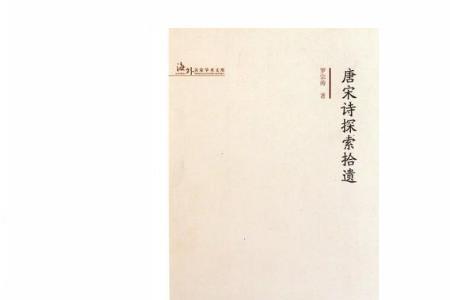 海外名家学术文库
罗宗涛 著
唐宋诗探索拾遗